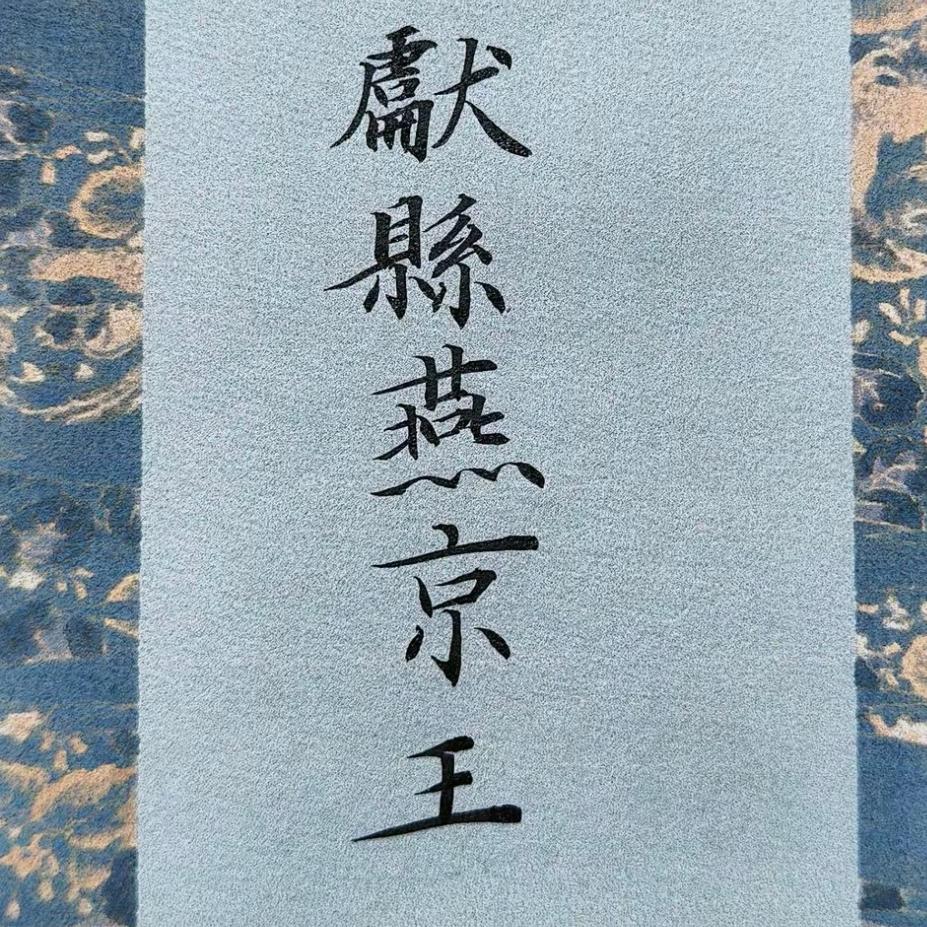 獻縣燕京王